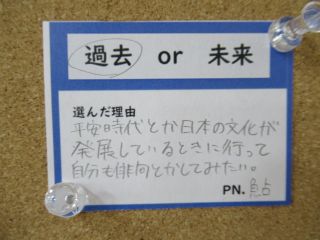 過去 or 未来
選んだ理由
平安時代とか日本の文化が
発展しているときに行って
自分も俳句とかしてみたい。
PN. 鮎